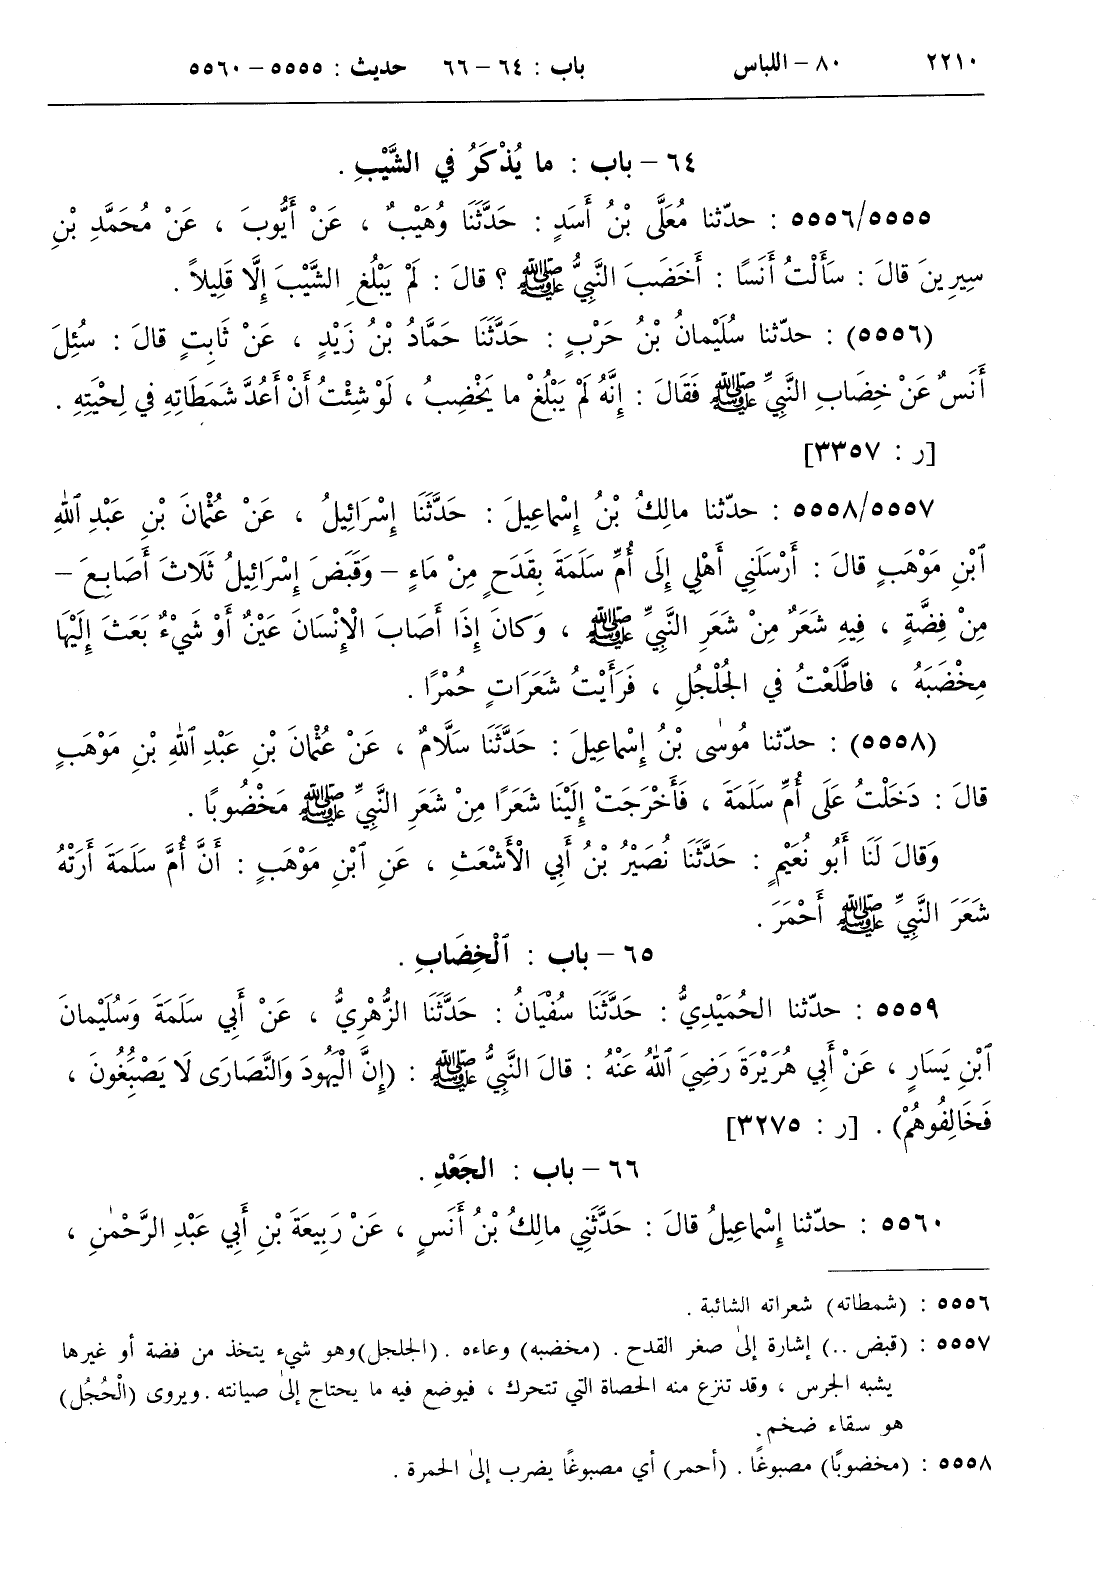 ٢٢١٠ ٨٠ – اللباس باب : ٦٤ – ٦٦ حديث : ٥٥٥٥ – ٥٥٦٠
٦٤ – باب : ما يُذْكَرُ في الشَّيْبِ .
٥٥٥٦/٥٥٥٥ : حدّثنا مُعَلَّى بْنُ أَسَدٍ : حَدَّثَنَا وُهَيْبٌ ، عَنْ أَيُّوبَ ، عَنْ مُحَمَّدِ بْنِ
سِيرِينَ قالَ : سَأَلْتُ أَنَسًا : أَخَضَبَ النَّبِيُّ ﷺ ؟ قالَ : لَمْ يَبْلُغِ الشَّيْبَ إِلَّا قَلِيلاً .
(٥٥٥٦) : حدّثنا سُلَيْمانُ بْنُ حَرْبٍ : حَدَّثَنَا حَمَّادُ بْنُ زَيْدٍ ، عَنْ ثَابِتٍ قالَ : سُئِلَ
أَنَسٌ عَنْ خِضَابِ النَّبِيِّ ﷺ فَقَالَ : إِنَّهُ لَمْ يَبْلُغْ ما يَخْضِبُ ، لَوْ شِئْتُ أَنْ أَعُدَّ شَمَطَاتِهِ في لِحْيَتِهِ .
[ر : ٣٣٥٧]
٥٥٥٨/٥٥٥٧ : حدّثنا مالِكُ بْنُ إِسْماعِيلَ : حَدَّثَنَا إِسْرَائِيلُ ، عَنْ عُثْمانَ بْنِ عَبْدِ ٱللهِ
ٱبْنِ مَوْهَبٍ قالَ : أَرْسَلَنِي أَهْلِي إِلَى أُمِّ سَلَمَةَ بِقَدَحٍ مِنْ ماءٍ – وَقَبَضَ إِسْرَائِيلُ ثَلَاثَ أَصَابِعَ –
مِنْ فِضَّةٍ ، فِيهِ شَعَرٌ مِنْ شَعَرِ النَّبِيِّ ﷺ ، وَكانَ إِذَا أَصَابَ الْإِنْسَانَ عَيْنٌ أَوْ شَيْءٌ بَعَثَ إِلَيْهَا
مِخْضَبَهُ ، فاطَّلَعْتُ في الجُلْجُلِ ، فَرَأَيْتُ شَعَرَاتٍ حُمْرًا .
(٥٥٥٨) : حدّثنا مُوسٰى بْنُ إِسْماعِيلَ : حَدَّثَنَا سَلَّامٌ ، عَنْ عُثْمانَ بْنِ عَبْدِ ٱللهِ بْنِ مَوْهَبٍ
قالَ : دَخَلْتُ عَلَى أُمِّ سَلَمَةَ ، فَأَخْرَجَتْ إِلَيْنَا شَعَرًا مِنْ شَعَرِ النَّبِيِّ ﷺ مَخْضُوبًا .
وَقالَ لَنَا أَبُو نُعَيْمٍ : حَدَّثَنَا نُصَيْرُ بْنُ أَبِي الْأَشْعَثِ ، عَنِ ٱبْنِ مَوْهَبٍ : أَنَّ أُمَّ سَلَمَةَ أَرَتْهُ
شَعَرَ النَّبِيِّ ﷺ أَحْمَرَ .
٦٥ – باب : ٱلْخِضَابِ .
٥٥٥٩ : حدّثنا الحُمَيْدِيُّ : حَدَّثَنَا سُفْيَانُ : حَدَّثَنَا الزُّهْرِيُّ ، عَنْ أَبِي سَلَمَةَ وَسُلَيْمانَ
ٱبْنِ يَسَارٍ ، عَنْ أَبِي هُرَيْرَةَ رَضِيَ ٱللهُ عَنْهُ : قالَ النَّبِيُّ ﷺ : (إِنَّ الْيَهُودَ وَالنَّصَارَى لَا يَصْبُغُونَ ،
فَخَالِفُوهُمْ) . [ر : ٣٢٧٥]
٦٦ – باب : الجَعْدِ .
٥٥٦٠ : حدّثنا إِسْماعِيلُ قالَ : حَدَّثَنِي مالِكُ بْنُ أَنَسٍ ، عَنْ رَبِيعَةَ بْنِ أَبِي عَبْدِ الرَّحْمٰنِ ،
٥٥٥٦ : (شمطاته) شعراته الشائبة .
٥٥٥٧ : (قبض ..) إشارة إلىٰ صغر القدح . (مخضبه) وعاءه . (الجلجل)وهو شيء يتخذ من فضة أو غيرها
يشبه الجرس ، وقد تنزع منه الحصاة التي تتحرك ، فيوضع فيه ما يحتاج إلىٰ صيانته . ويروى (الْحُجُل)
هو سقاء ضخم .
٥٥٥٨ : (مخضوبًا) مصبوغًا . (أحمر) أي مصبوغًا يضرب إلىٰ الحمرة .